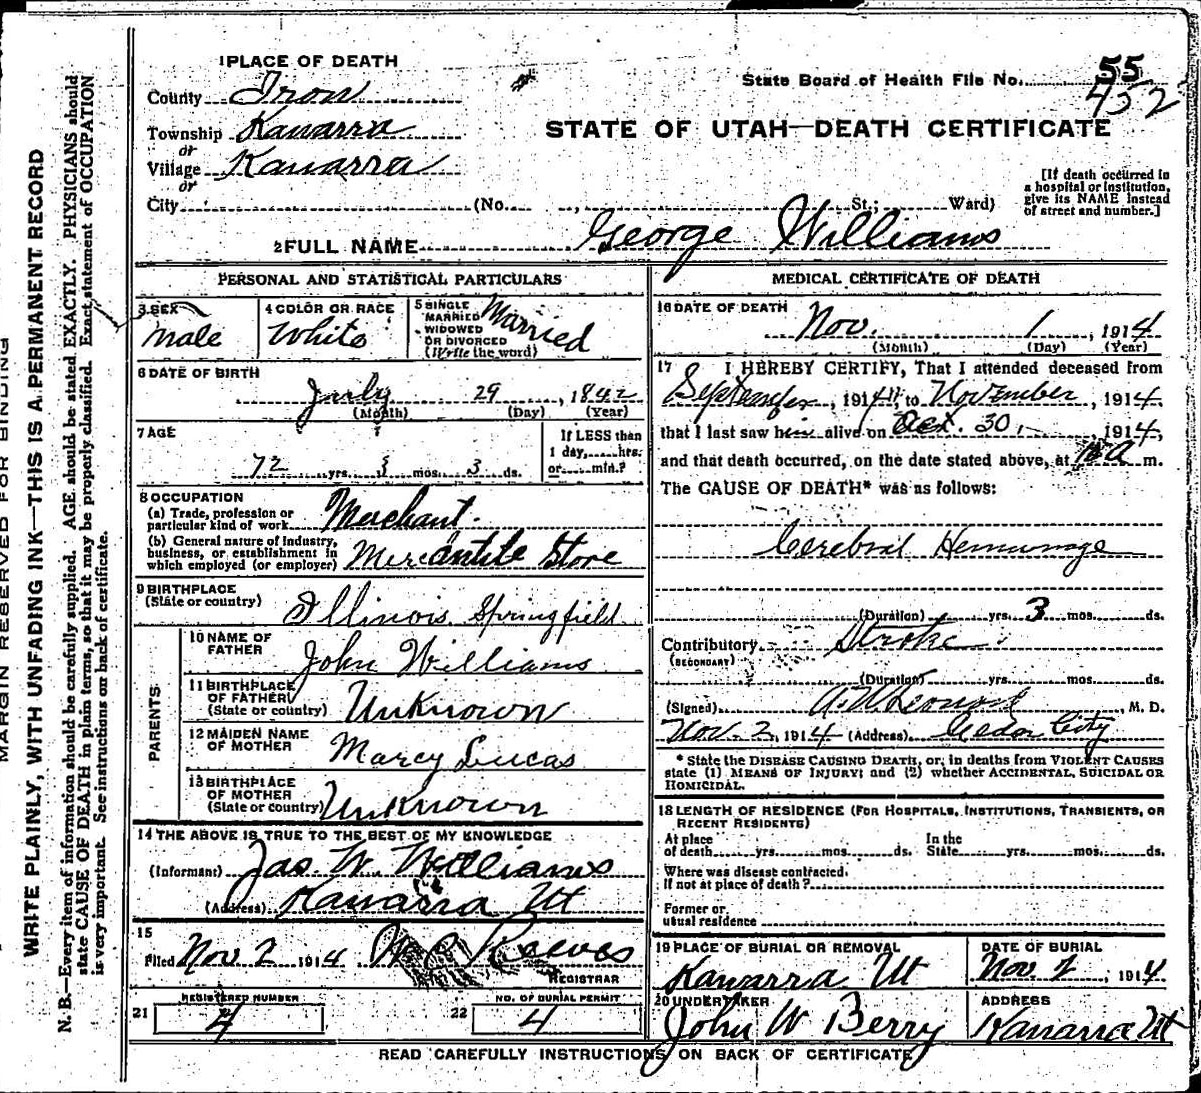 MARGIN RESERVED FOR BINDING
WRITE PLAINLY, WITH UNFADING INK—THIS IS A PERMANENT RECORD
N. B.—Every item of information should be carefully supplied. AGE should be stated EXACTLY. PHYSICIANS should
state CAUSE OF DEATH in plain terms, so that it may be properly classified. Exact statement of OCCUPATION
is very important. See instructions on back of certificate.
1 PLACE OF DEATH
County Iron
Township Kanarra
or
Village Kanarra
or
City (No. , St.; Ward)
State Board of Health File No. 55
452
STATE OF UTAH—DEATH CERTIFICATE
[If death occurred in
a hospital or institution,
give its NAME instead
of street and number.]
2 FULL NAME George Williams
PERSONAL AND STATISTICAL PARTICULARS
3 SEX
Male
4 COLOR OR RACE
White
5 SINGLE
MARRIED
WIDOWED
OR DIVORCED
(Write the word)
Married
6 DATE OF BIRTH
July 29, 1842
(Month) (Day) (Year)
7 AGE
72 yrs. 3 mos. 3 ds.
If LESS than
1 day, hrs.
or min.?
8 OCCUPATION
(a) Trade, profession or
particular kind of work Merchant.
(b) General nature of industry,
business, or establishment in
which employed (or employer) Mercantile Store
9 BIRTHPLACE
(State or country) Illinois Springfield
PARENTS
10 NAME OF
FATHER John Williams
11 BIRTHPLACE
OF FATHER
(State or country) Unknown
12 MAIDEN NAME
OF MOTHER Marcy Lucas
13 BIRTHPLACE
OF MOTHER
(State or country) Unknown
14 THE ABOVE IS TRUE TO THE BEST OF MY KNOWLEDGE
(Informant) Jas. W. Williams
(Address) Kanarra Ut
15
Filed Nov 2 1914 Reeves
REGISTRAR
REGISTERED NUMBER
21 4
NO. OF BURIAL PERMIT
22 4
MEDICAL CERTIFICATE OF DEATH
16 DATE OF DEATH
Nov. 1, 1914
(Month) (Day) (Year)
17 I HEREBY CERTIFY, That I attended deceased from
September, 1914, to November, 1914,
that I last saw him alive on Oct. 30, 1914,
and that death occurred, on the date stated above, at a m.
The CAUSE OF DEATH* was as follows:
Cerebral Hemorrage
(Duration) yrs. 3 mos. ds.
Contributory Stroke
(SECONDARY)
(Duration) yrs. mos. ds.
(Signed) , M. D.
Nov. 2, 1914 (Address) Cedar City
* State the DISEASE CAUSING DEATH, or, in deaths from VIOLENT CAUSES
state (1) MEANS OF INJURY; and (2) whether ACCIDENTAL, SUICIDAL OR
HOMICIDAL.
18 LENGTH OF RESIDENCE (FOR HOSPITALS, INSTITUTIONS, TRANSIENTS, OR
RECENT RESIDENTS)
At place In the
of death yrs. mos. ds. State yrs. mos. ds.
Where was disease contracted,
if not at place of death?
Former or
usual residence
19 PLACE OF BURIAL OR REMOVAL
Kanarra Ut
DATE OF BURIAL
Nov 2, 1914
20 UNDERTAKER
John W Berry
ADDRESS
Kanarra Ut
READ CAREFULLY INSTRUCTIONS ON BACK OF CERTIFICATE